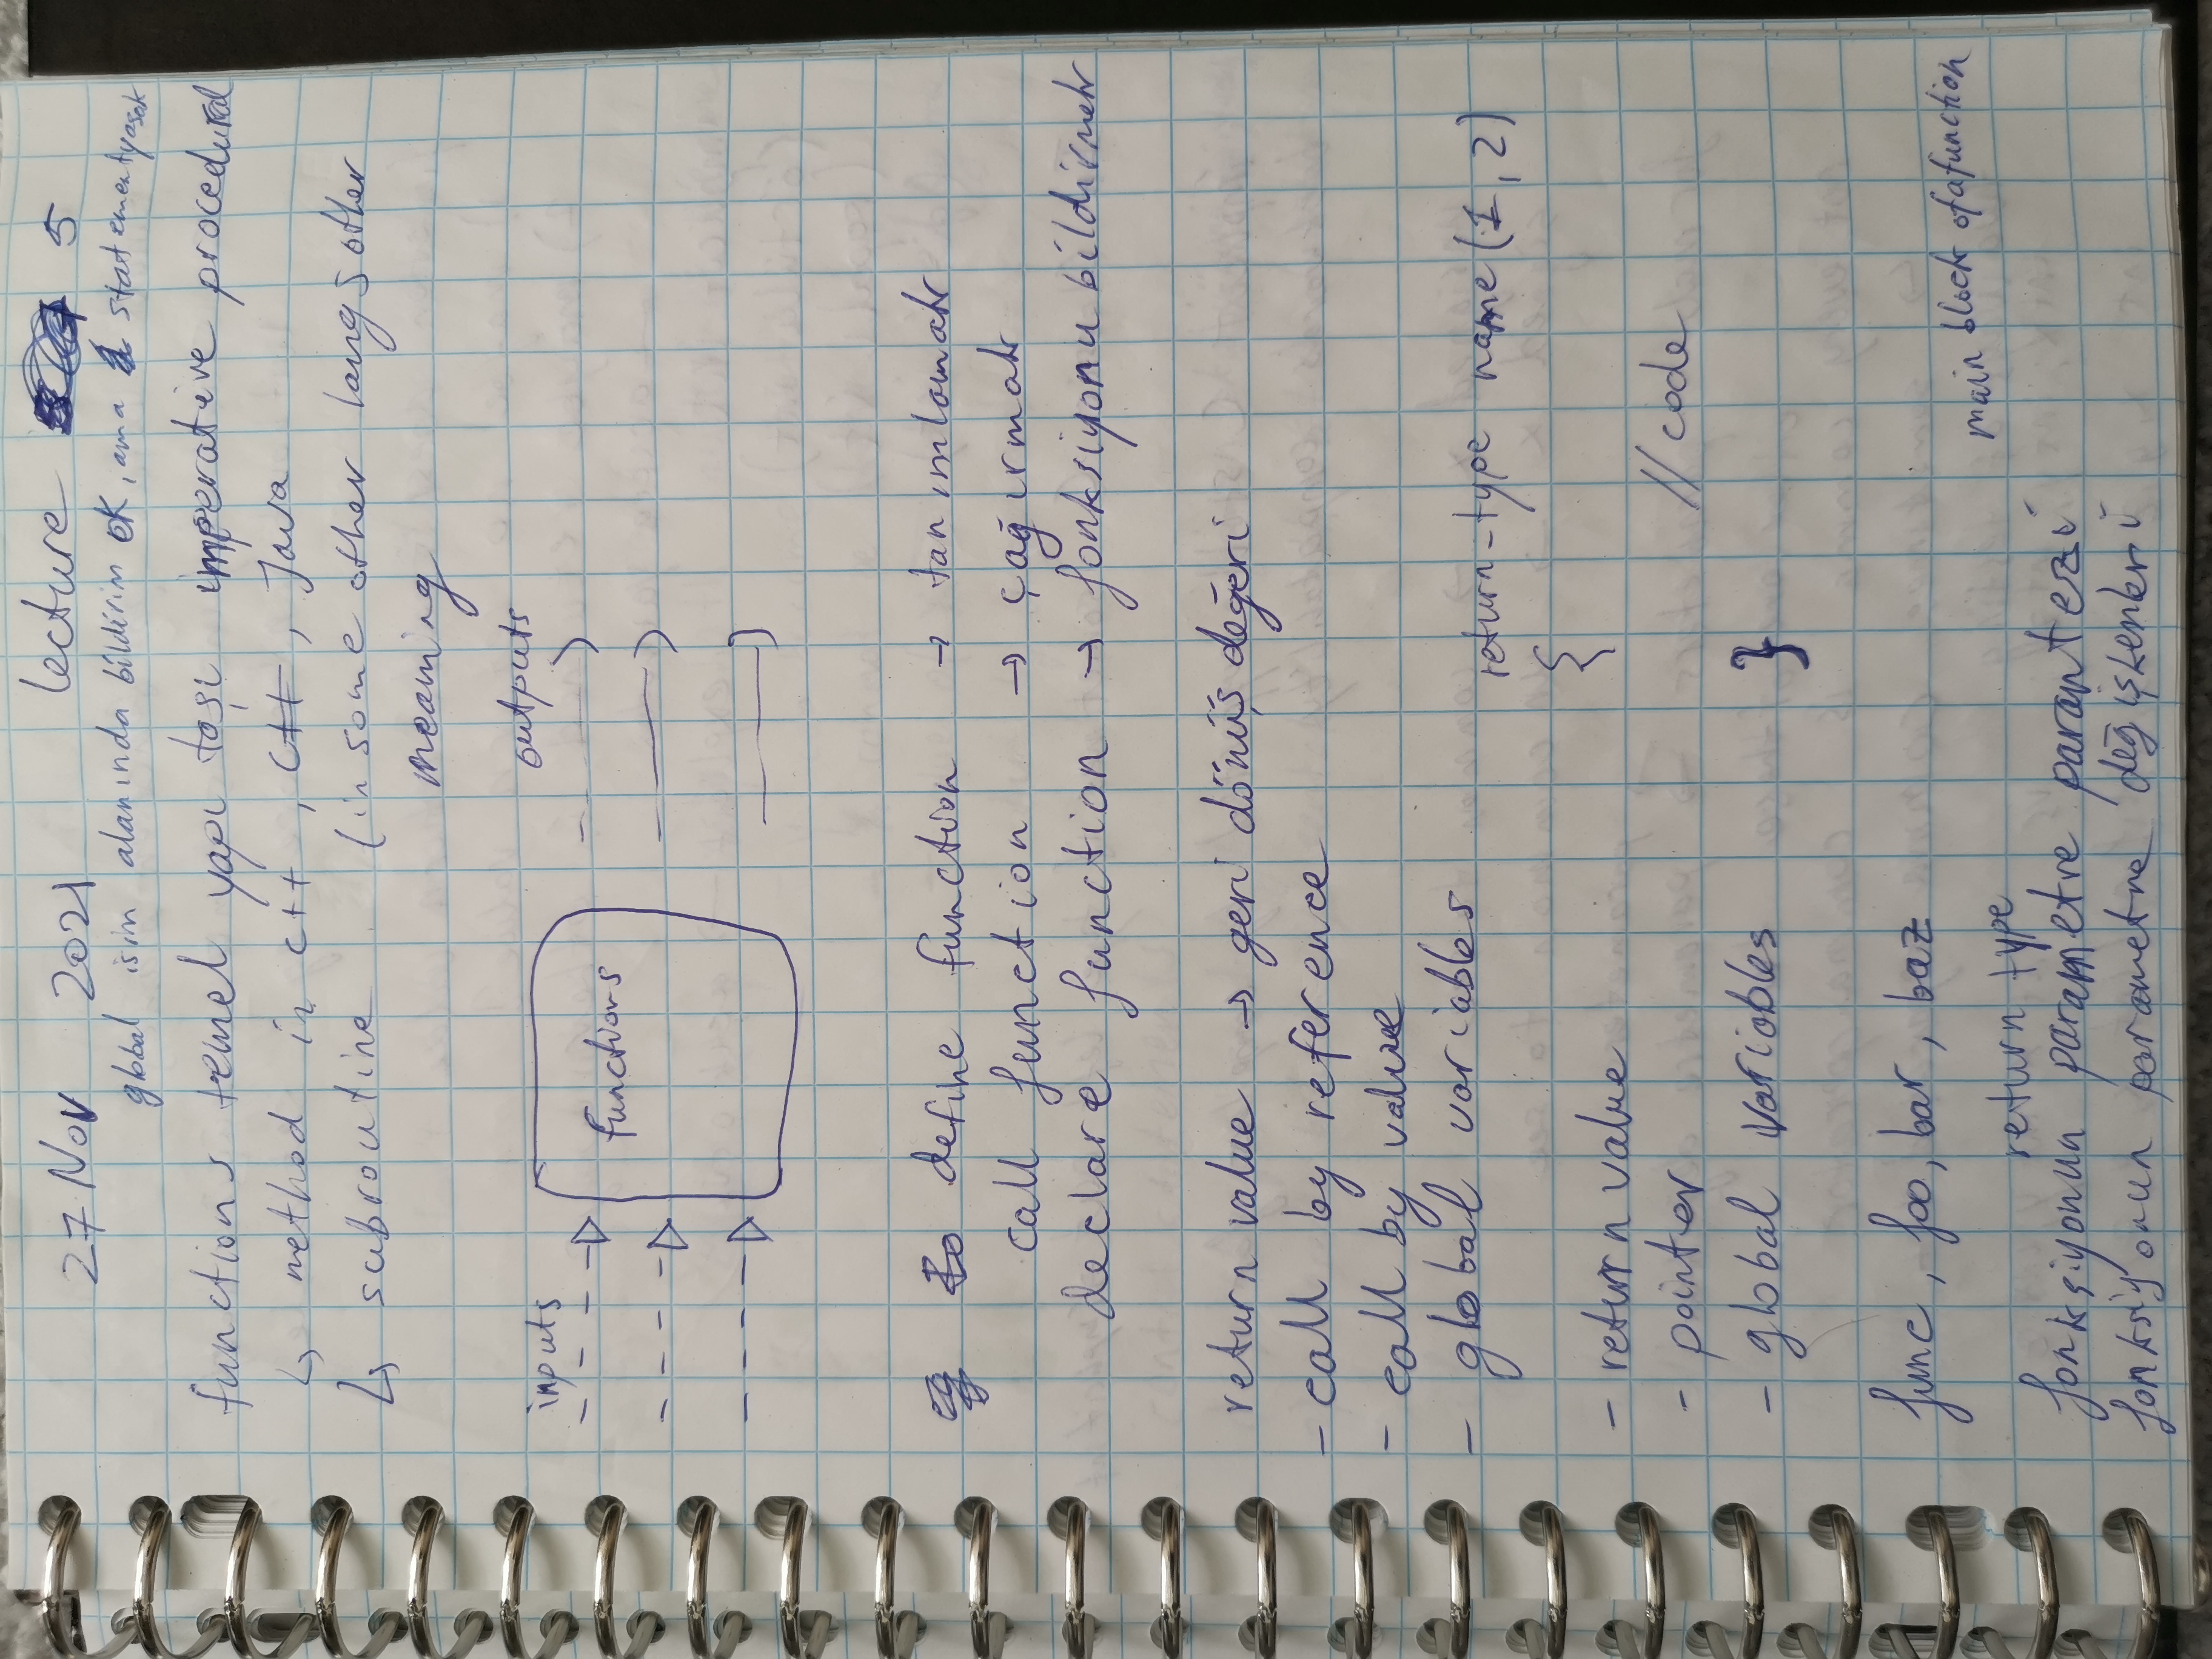 27 Nov 2021 lecture 5
global isim alanında bildirim ok, ama statement yasak
functions temel yapı taşı imperative procedural
↳ method in c++, C++, Java
↳ subroutine (in some other langs other
meaning
inputs
outputs
functions
define function → tanımlamak
call function → çağırmak
declare function → fonksiyonu bildirmek
return value → geri dönüş değeri
- call by reference
- call by value
- global variables
return-type name (1, 2)
{
- return value
- pointer
// code
- global variables
}
func, foo, bar, baz
main block of a function
return type
fonksiyonun parametre parantezi
fonksiyonun parametre değişkenleri